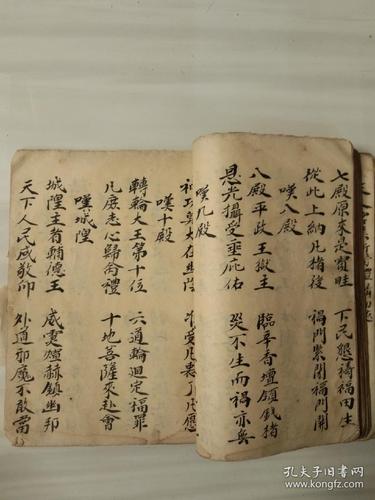 七殿原來是寶哇 下民懇禱禍田生
從此上納凡猪後 禍門緊閉福門開
嘆八殿
八殿平政王獄主 臨辛香壇領錢猪
恩光攝受垂庇佑 災不生而禍亦無
嘆九殿
嘆十殿
轉輪大王第十位 六道輪迴定福罪
凡庶志心歸命禮 十地菩薩來赴會
嘆城隍
城隍主者輔德王 威靈煊赫鎮幽邦
天下人民咸敬仰 外道邪魔不敢當
孔夫子旧书网